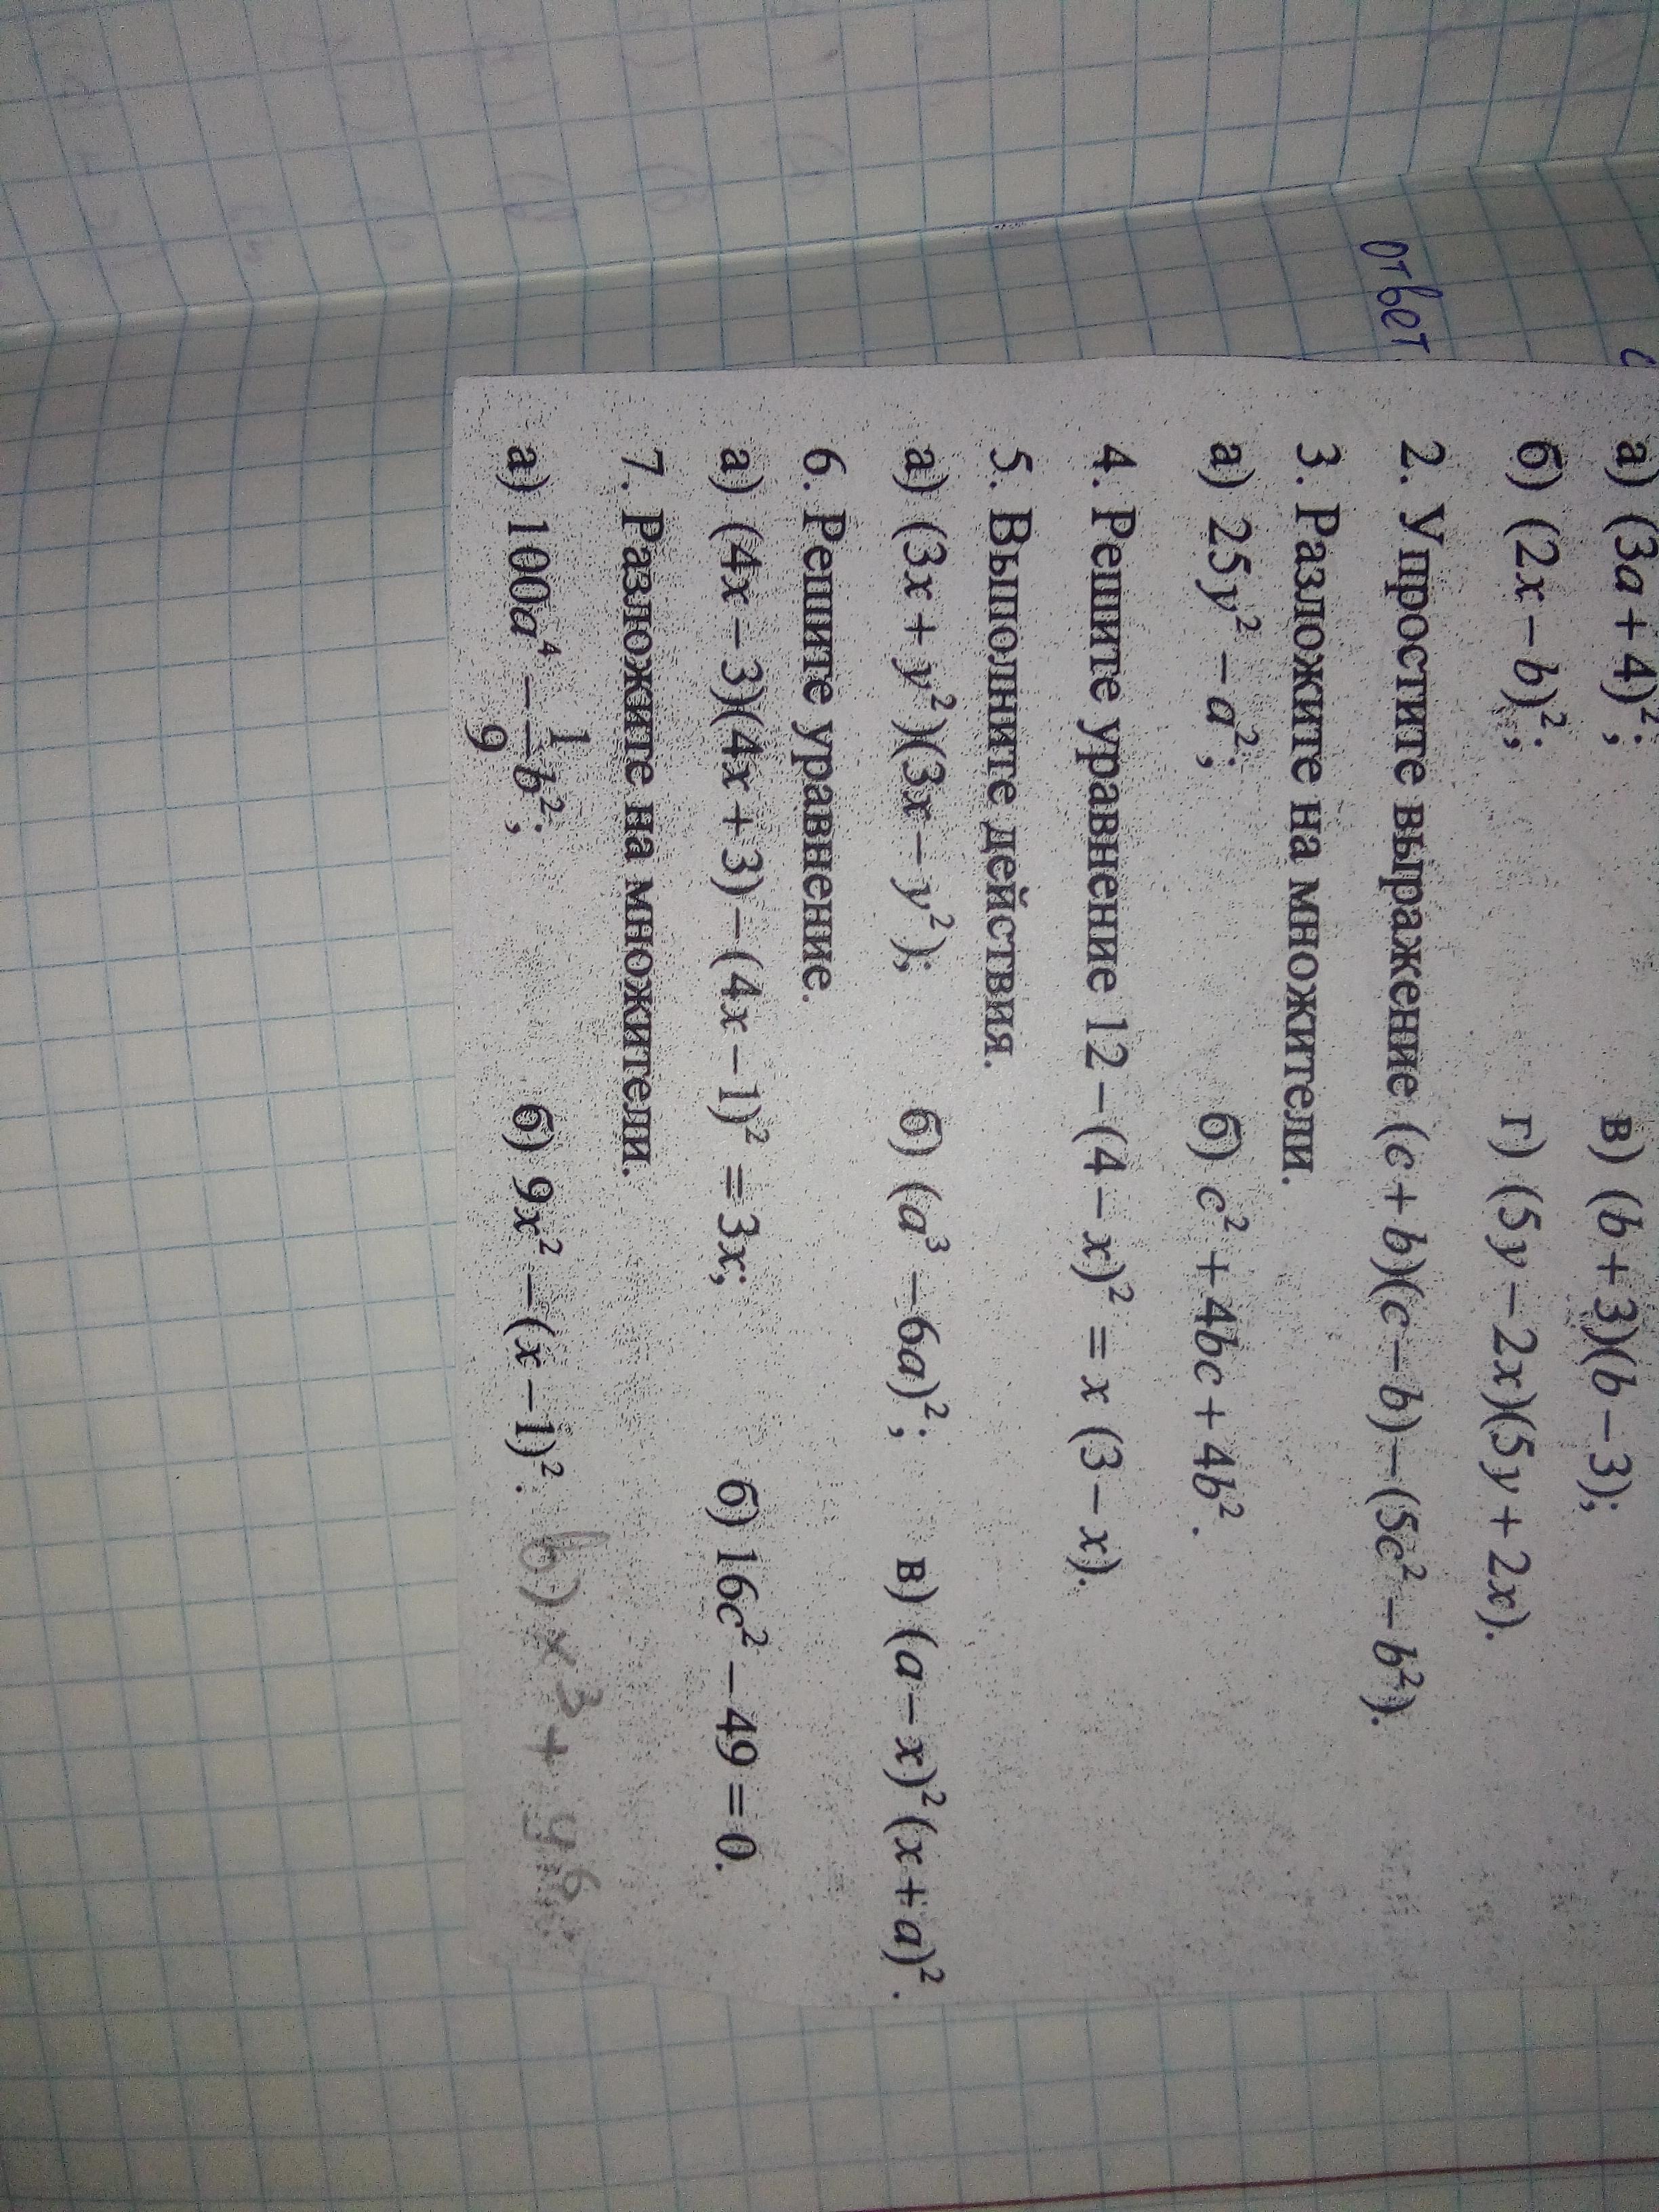 ответ
а) (3a + 4)²; в) (b + 3)(b − 3);
б) (2x − b)²; г) (5y − 2x)(5y + 2x).
2. Упростите выражение (c + b)(c − b) − (5c² − b²).
3. Разложите на множители.
а) 25y² − a²; б) c² + 4bc + 4b².
4. Решите уравнение 12 − (4 − x)² = x (3 − x).
5. Выполните действия.
а) (3x + y²)(3x − y²); б) (a³ − 6a)²; в) (a − x)² (x + a)².
6. Решите уравнение.
а) (4x − 3)(4x + 3) − (4x − 1)² = 3x; б) 16c² − 49 = 0.
7. Разложите на множители.
а) 100a⁴ − 1/9 b²; б) 9x² − (x − 1)². в) x³ + y⁶